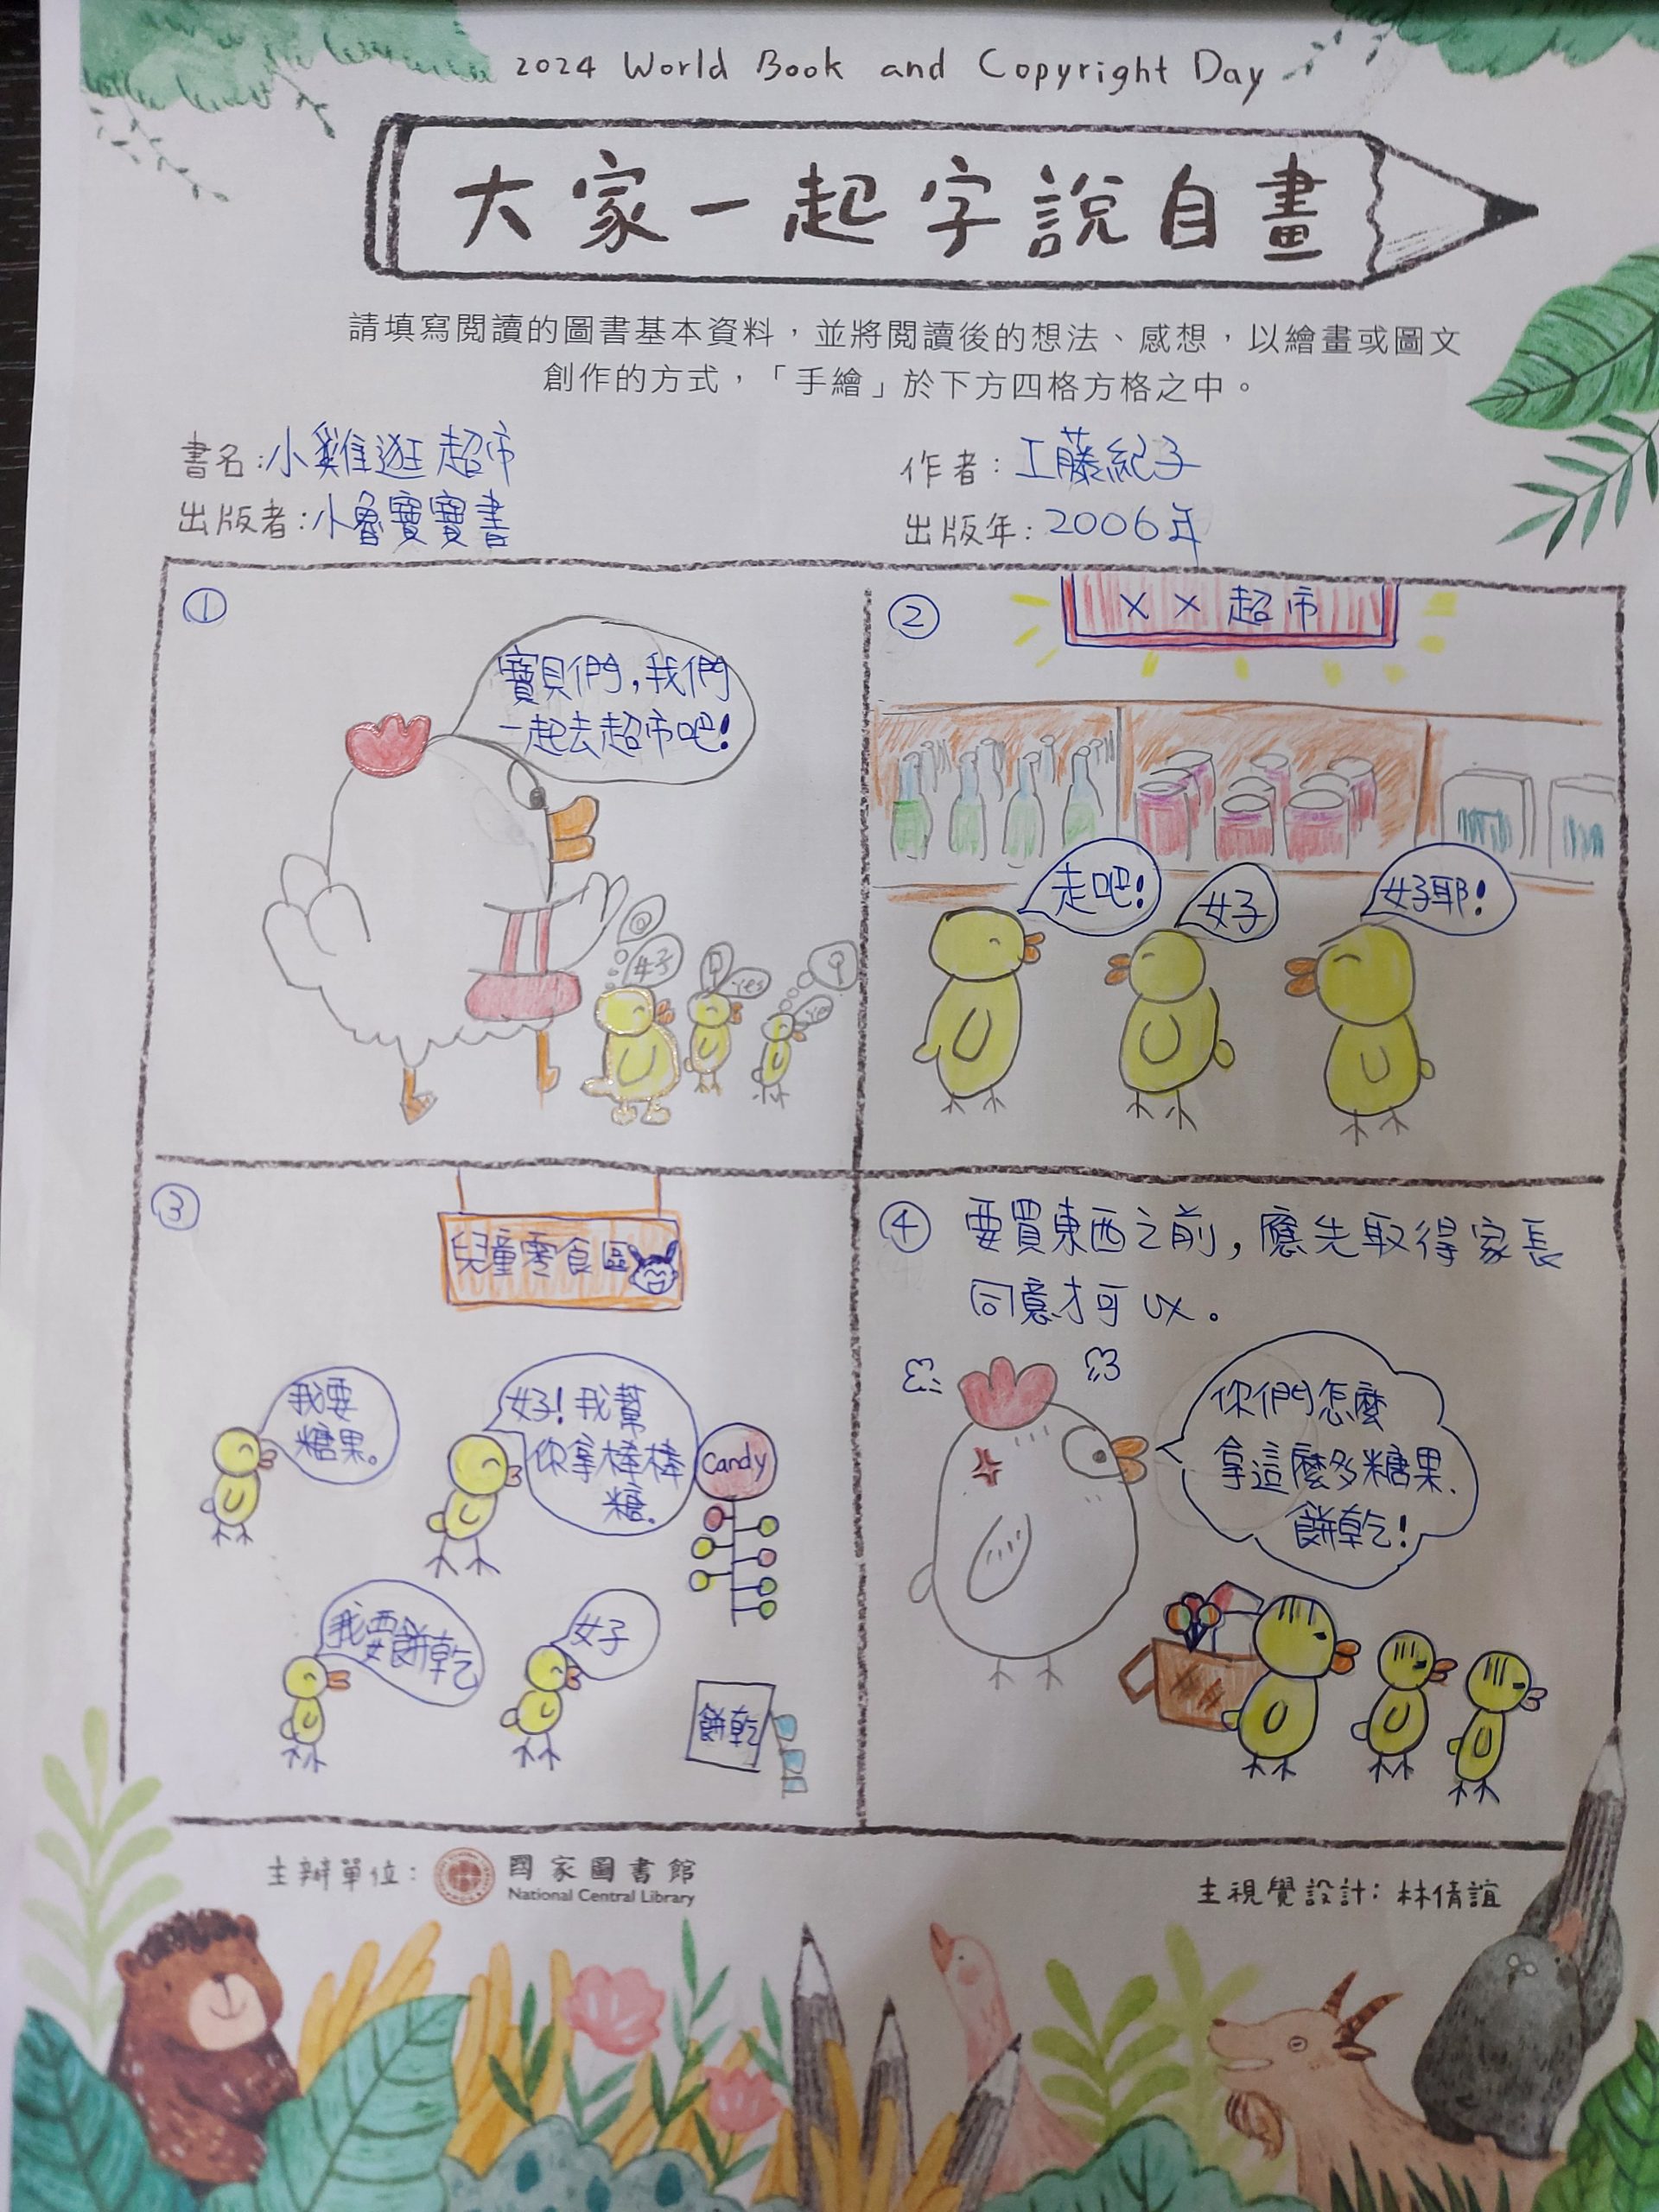 2024 World Book and Copyright Day
大家一起字說自畫
請填寫閱讀的圖書基本資料，並將閱讀後的想法、感想，以繪畫或圖文
創作的方式，「手繪」於下方四格方格之中。
書名：小雞逛超市
作者：工藤紀子
出版者：小魯寶寶書
出版年：2006年
①
寶貝們，我們
一起去超市吧！
好
yes
yes
②
××超市
走吧！
好
好耶！
③
兒童零食區
我要
糖果。
好！我幫
你拿棒棒
糖.
Candy
我要餅乾
好
餅乾
④ 要買東西之前，應先取得家長
同意才可以。
你們怎麼
拿這麼多糖果、
餅乾！
主辦單位：
國家圖書館
National Central Library
主視覺設計：林倩誼